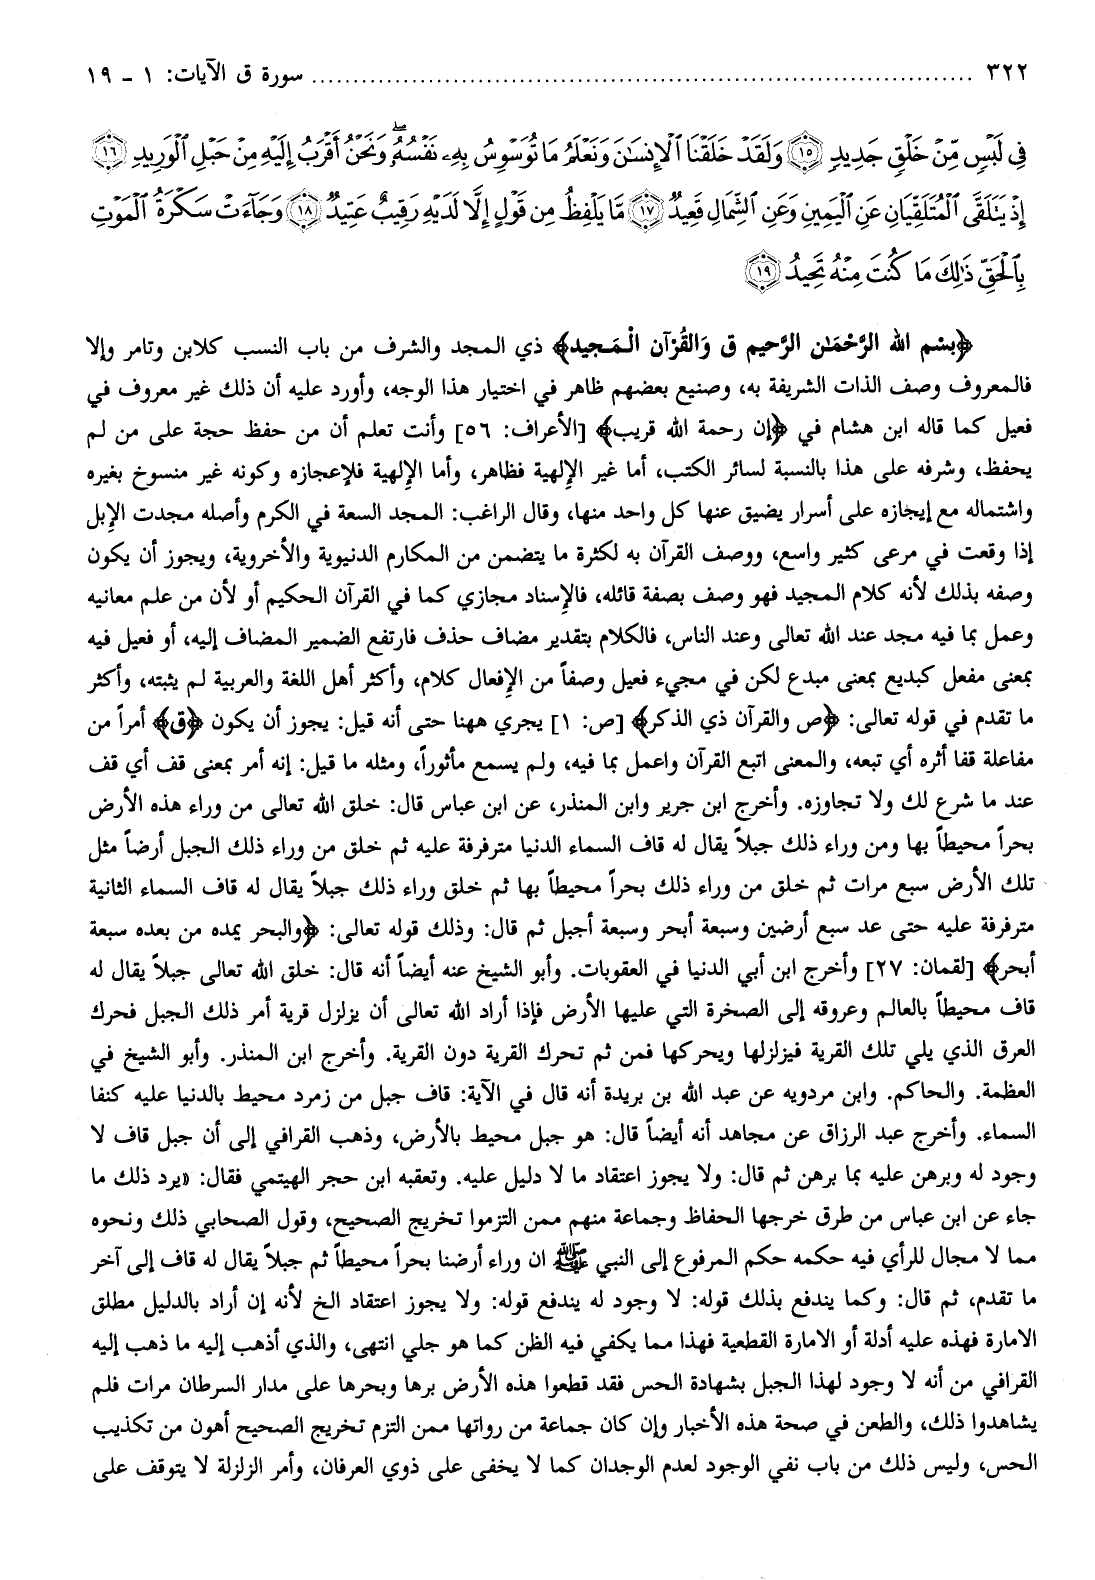 ٣٢٢ ........................................................................ سورة ق الآيات: ١ - ١٩
فِي لَبْسٍ مِّنْ خَلْقٍ جَدِيدٍ ﴿١٥﴾ وَلَقَدْ خَلَقْنَا ٱلْإِنسَٰنَ وَنَعْلَمُ مَا تُوَسْوِسُ بِهِۦ نَفْسُهُۥ ۖ وَنَحْنُ أَقْرَبُ إِلَيْهِ مِنْ حَبْلِ ٱلْوَرِيدِ ﴿١٦﴾
إِذْ يَتَلَقَّى ٱلْمُتَلَقِّيَانِ عَنِ ٱلْيَمِينِ وَعَنِ ٱلشِّمَالِ قَعِيدٌ ﴿١٧﴾ مَّا يَلْفِظُ مِن قَوْلٍ إِلَّا لَدَيْهِ رَقِيبٌ عَتِيدٌ ﴿١٨﴾ وَجَآءَتْ سَكْرَةُ ٱلْمَوْتِ
بِٱلْحَقِّ ذَٰلِكَ مَا كُنتَ مِنْهُ تَحِيدُ ﴿١٩﴾
﴿بسْم الله الرَّحْمَـٰن الرَّحيم ق وَالقُرْآن الْـمَـجيد﴾ ذي المجد والشرف من باب النسب كلابن وتامر وإلا
فالمعروف وصف الذات الشريفة به، وصنيع بعضهم ظاهر في اختيار هذا الوجه، وأورد عليه أن ذلك غير معروف في
فعيل كما قاله ابن هشام في ﴿إن رحمة الله قريب﴾ [الأعراف: ٥٦] وأنت تعلم أن من حفظ حجة على من لم
يحفظ، وشرفه على هذا بالنسبة لسائر الكتب، أما غير الإلهية فظاهر، وأما الإلهية فلإعجازه وكونه غير منسوخ بغيره
واشتماله مع إيجازه على أسرار يضيق عنها كل واحد منها، وقال الراغب: المجد السعة في الكرم وأصله مجدت الإبل
إذا وقعت في مرعى كثير واسع، ووصف القرآن به لكثرة ما يتضمن من المكارم الدنيوية والأخروية، ويجوز أن يكون
وصفه بذلك لأنه كلام المجيد فهو وصف بصفة قائله، فالإسناد مجازي كما في القرآن الحكيم أو لأن من علم معانيه
وعمل بما فيه مجد عند الله تعالى وعند الناس، فالكلام بتقدير مضاف حذف فارتفع الضمير المضاف إليه، أو فعيل فيه
بمعنى مفعل كبديع بمعنى مبدع لكن في مجيء فعيل وصفاً من الإفعال كلام، وأكثر أهل اللغة والعربية لم يثبته، وأكثر
ما تقدم في قوله تعالى: ﴿ص والقرآن ذي الذكر﴾ [ص: ١] يجري ههنا حتى أنه قيل: يجوز أن يكون ﴿ق﴾ أمراً من
مفاعلة قفا أثره أي تبعه، والمعنى اتبع القرآن واعمل بما فيه، ولم يسمع مأثوراً، ومثله ما قيل: إنه أمر بمعنى قف أي قف
عند ما شرع لك ولا تجاوزه. وأخرج ابن جرير وابن المنذر، عن ابن عباس قال: خلق الله تعالى من وراء هذه الأرض
بحراً محيطاً بها ومن وراء ذلك جبلاً يقال له قاف السماء الدنيا مترفرفة عليه ثم خلق من وراء ذلك الجبل أرضاً مثل
تلك الأرض سبع مرات ثم خلق من وراء ذلك بحراً محيطاً بها ثم خلق وراء ذلك جبلاً يقال له قاف السماء الثانية
مترفرفة عليه حتى عد سبع أرضين وسبعة أبحر وسبعة أجبل ثم قال: وذلك قوله تعالى: ﴿والبحر يمده من بعده سبعة
أبحر﴾ [لقمان: ٢٧] وأخرج ابن أبي الدنيا في العقوبات. وأبو الشيخ عنه أيضاً أنه قال: خلق الله تعالى جبلاً يقال له
قاف محيطاً بالعالم وعروقه إلى الصخرة التي عليها الأرض فإذا أراد الله تعالى أن يزلزل قرية أمر ذلك الجبل فحرك
العرق الذي يلي تلك القرية فيزلزلها ويحركها فمن ثم تحرك القرية دون القرية. وأخرج ابن المنذر. وأبو الشيخ في
العظمة. والحاكم. وابن مردويه عن عبد الله بن بريدة أنه قال في الآية: قاف جبل من زمرد محيط بالدنيا عليه كنفا
السماء. وأخرج عبد الرزاق عن مجاهد أنه أيضاً قال: هو جبل محيط بالأرض، وذهب القرافي إلى أن جبل قاف لا
وجود له وبرهن عليه بما برهن ثم قال: ولا يجوز اعتقاد ما لا دليل عليه. وتعقبه ابن حجر الهيتمي فقال: «يرد ذلك ما
جاء عن ابن عباس من طرق خرجها الحفاظ وجماعة منهم ممن التزموا تخريج الصحيح، وقول الصحابي ذلك ونحوه
مما لا مجال للرأي فيه حكمه حكم المرفوع إلى النبي ﷺ ان وراء أرضنا بحراً محيطاً ثم جبلاً يقال له قاف إلى آخر
ما تقدم، ثم قال: وكما يندفع بذلك قوله: لا وجود له يندفع قوله: ولا يجوز اعتقاد الخ لأنه إن أراد بالدليل مطلق
الامارة فهذه عليه أدلة أو الامارة القطعية فهذا مما يكفي فيه الظن كما هو جلي انتهى، والذي أذهب إليه ما ذهب إليه
القرافي من أنه لا وجود لهذا الجبل بشهادة الحس فقد قطعوا هذه الأرض برها وبحرها على مدار السرطان مرات فلم
يشاهدوا ذلك، والطعن في صحة هذه الأخبار وإن كان جماعة من رواتها ممن التزم تخريج الصحيح أهون من تكذيب
الحس، وليس ذلك من باب نفي الوجود لعدم الوجدان كما لا يخفى على ذوي العرفان، وأمر الزلزلة لا يتوقف على